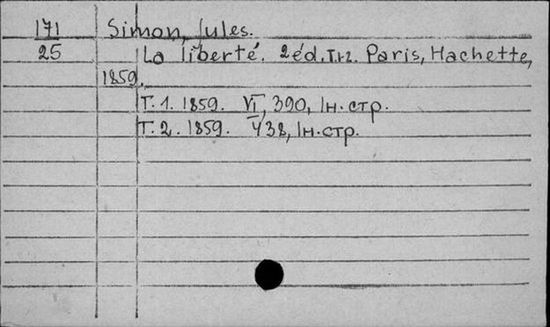 171 Simon, Jules.
25 La liberté. 2éd. T.1-2. Paris, Hachette,
1859.
T. 1. 1859. VI, 390, Iн. стр.
T. 2. 1859. 438, Iн. стр.